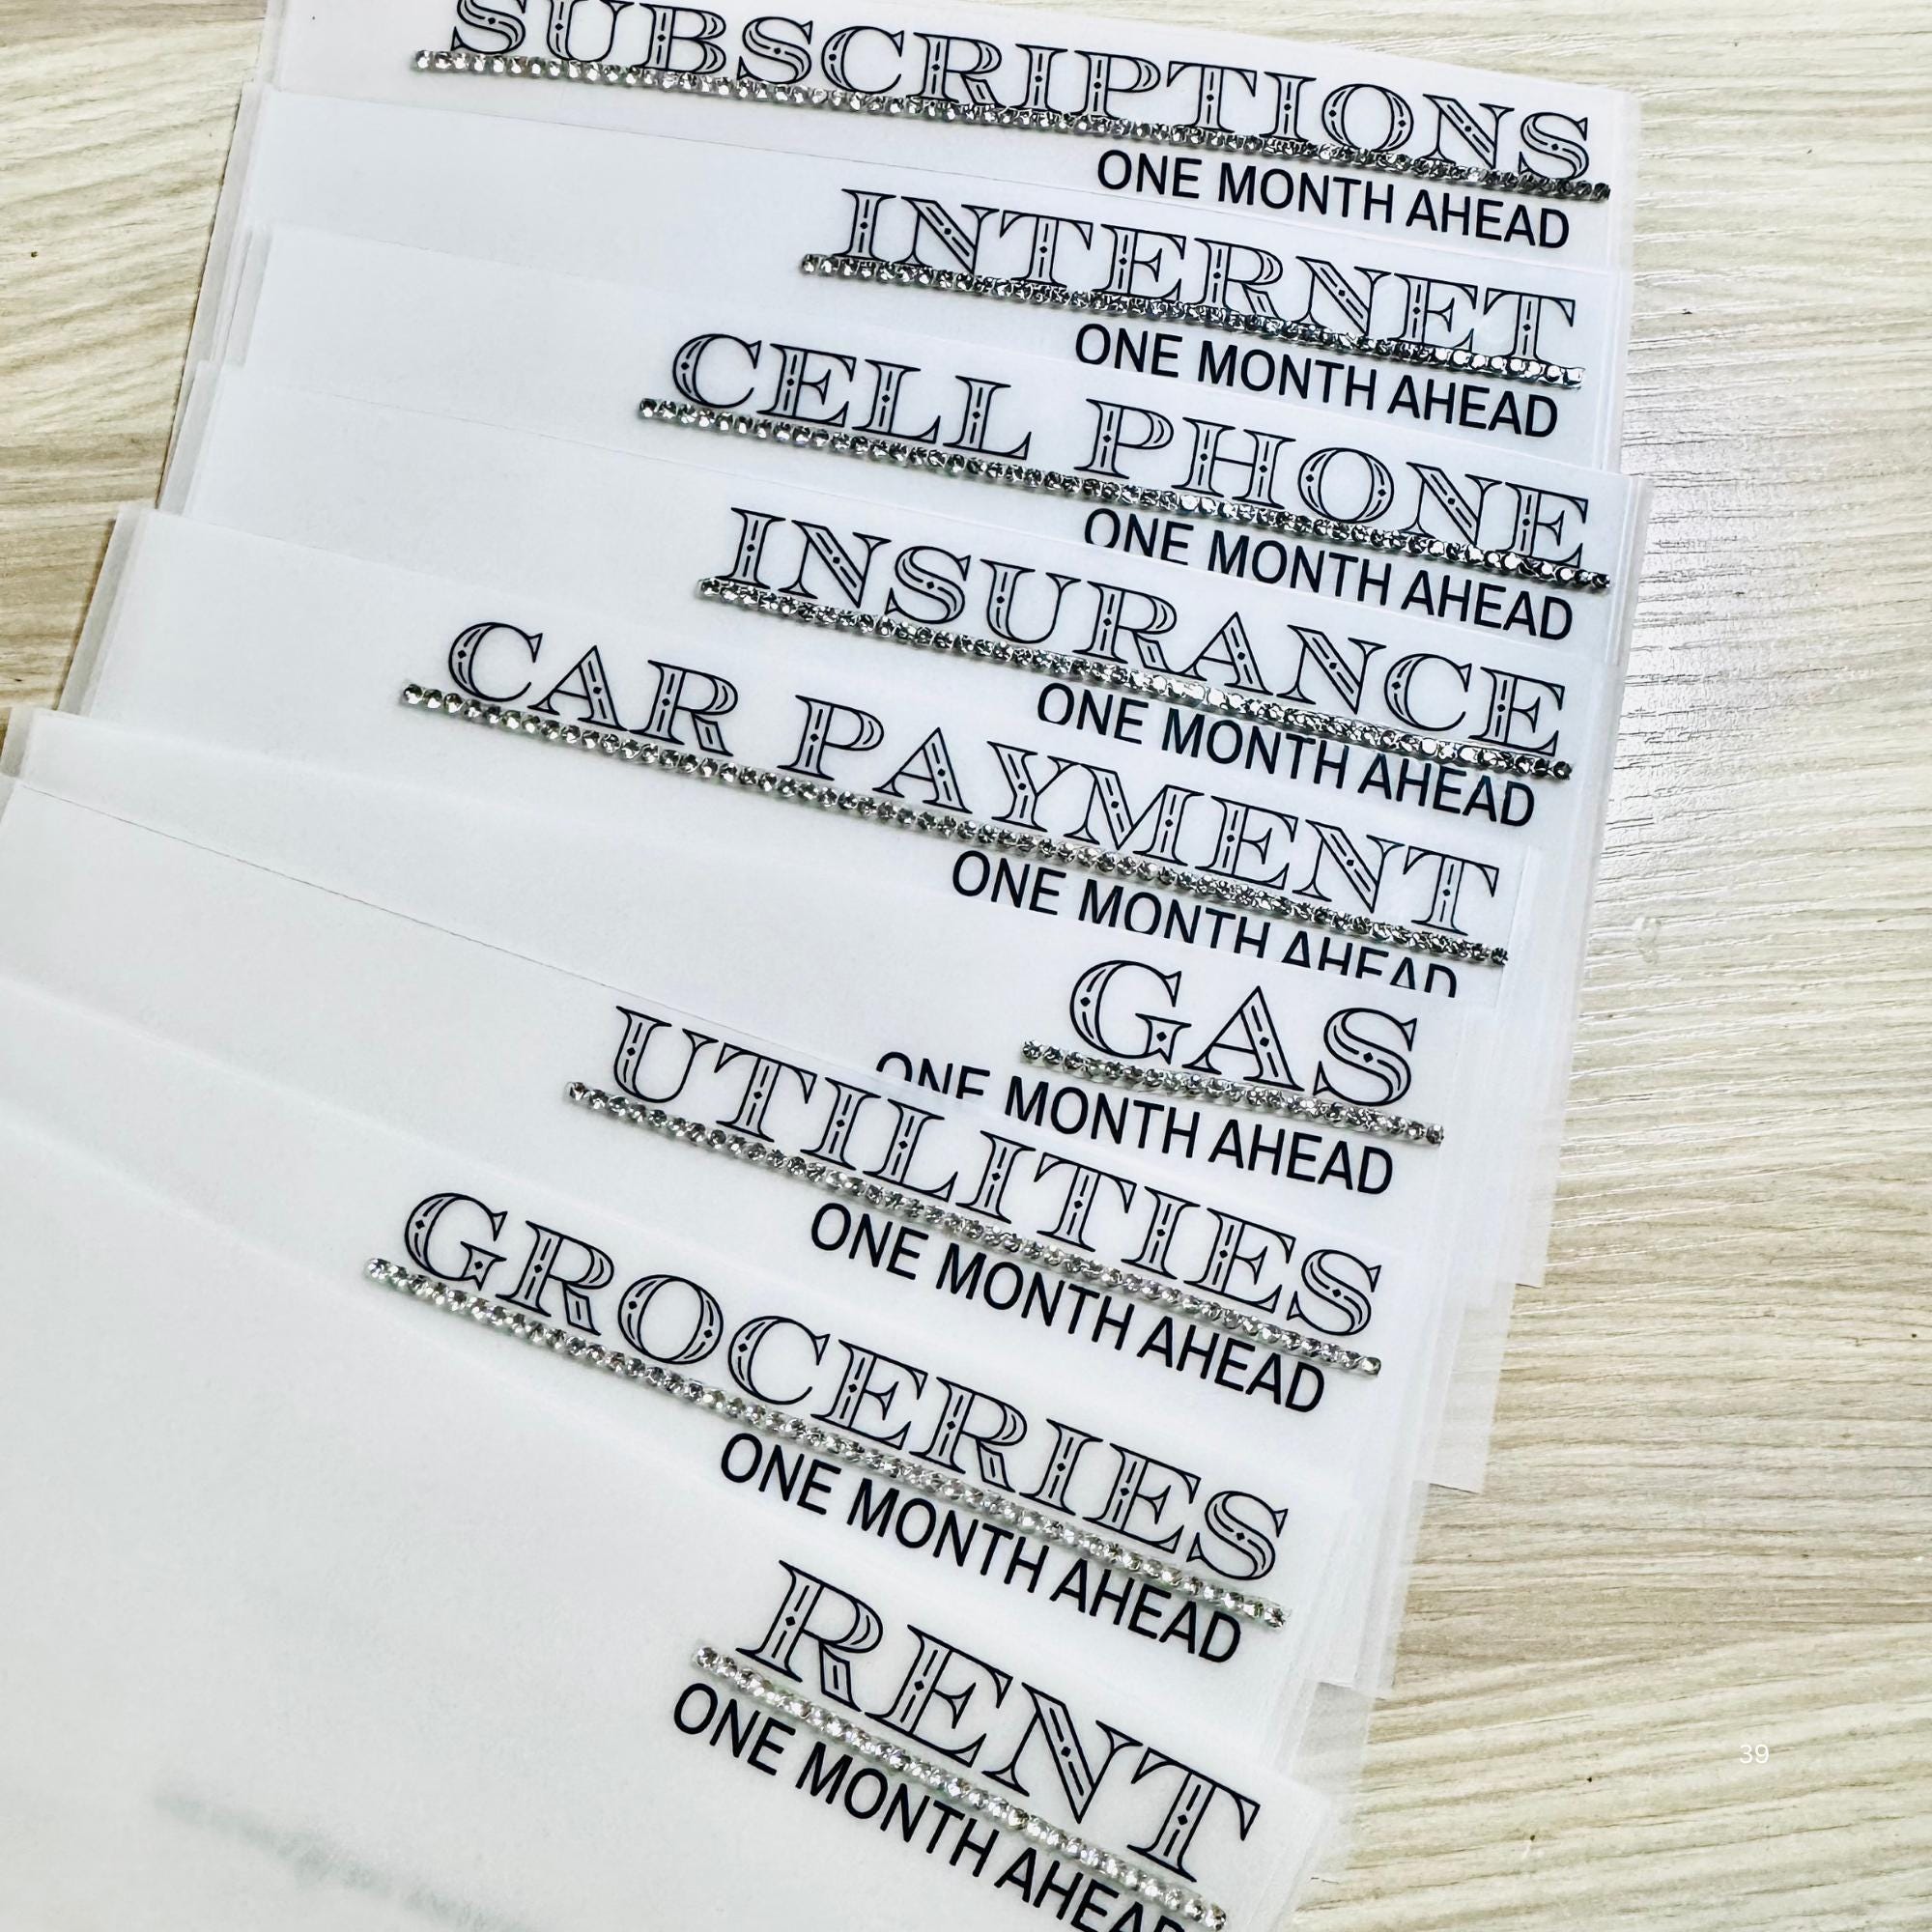 SUBSCRIPTIONS
ONE MONTH AHEAD
INTERNET
ONE MONTH AHEAD
CELL PHONE
ONE MONTH AHEAD
INSURANCE
ONE MONTH AHEAD
CAR PAYMENT
ONE MONTH AHEAD
GAS
ONE MONTH AHEAD
UTILITIES
ONE MONTH AHEAD
GROCERIES
ONE MONTH AHEAD
RENT
ONE MONTH AHEAD
39